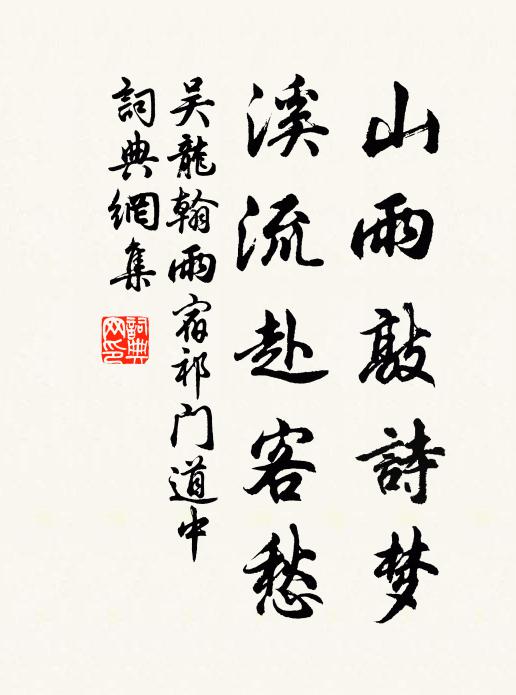 山雨敲詩梦
溪流赴客愁
吴龍翰雨宿祁门道中
詞典網集
詞典网印